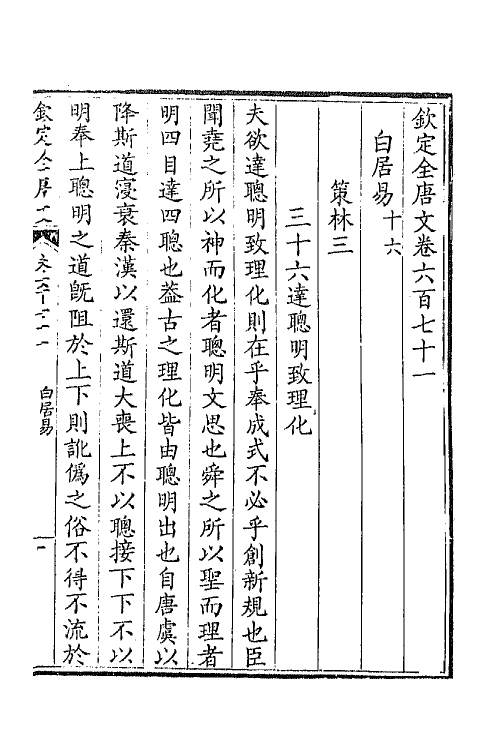 欽定全唐文卷六百七十一
白居易十六
策林三
三十六達聰明致理化
夫欲達聰明致理化則在乎奉成式不必乎創新規也臣
聞堯之所以神而化者聰明文思也舜之所以聖而理者
明四目達四聰也蓋古之理化皆由聰明出也自唐虞以
降斯道寖衰秦漢以還斯道大喪上不以聰接下下不以
明奉上聰明之道旣阻於上下則訛僞之俗不得不流於
欽定全唐文
白居易
一